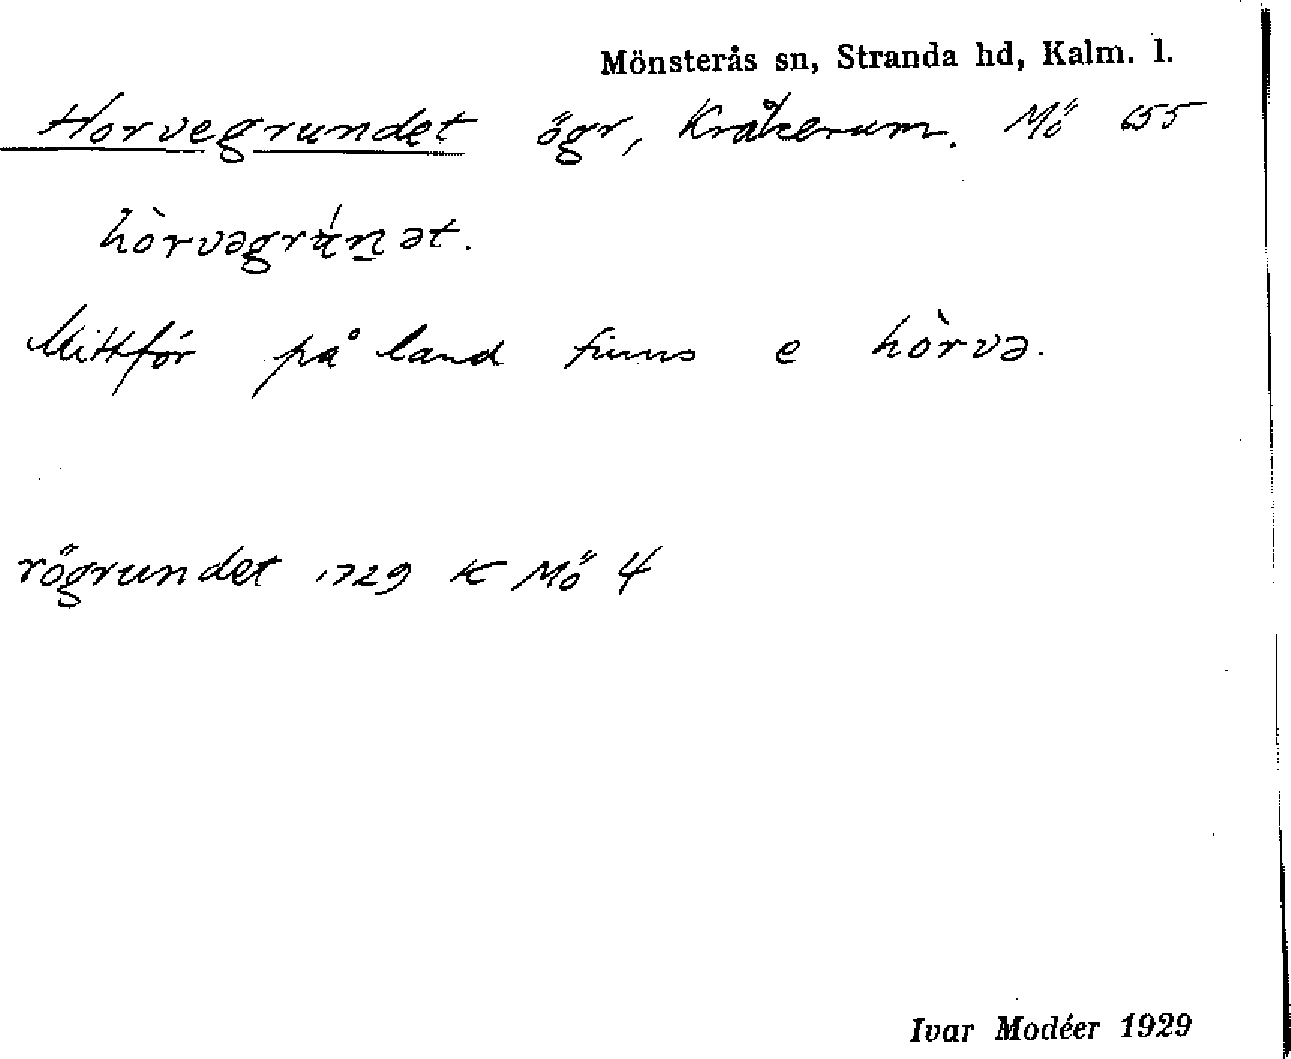 Mönsterås sn, Stranda hd, Kalm. l.
Horvegrundet ögr, Kråkerum. Mö 655
hòrvəgrúnət.
Mittför på land finns e hòrvə.
rögrundet 1729 K Mö 4
Ivar Modéer 1929